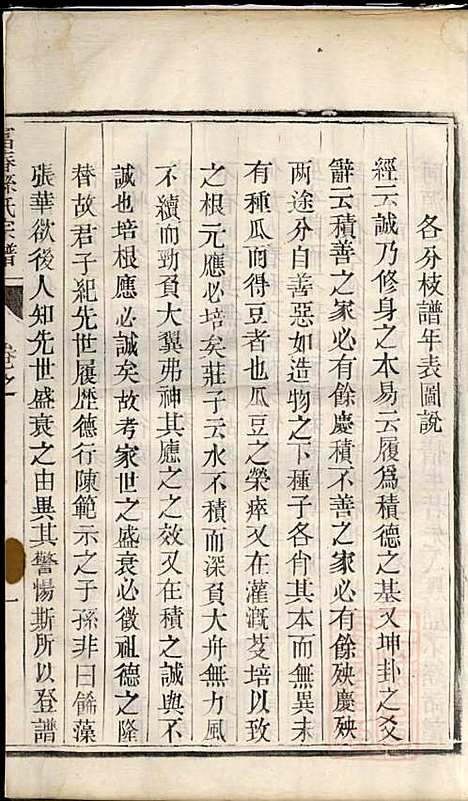 各分枝譜年表圖說
經云誠乃修身之本易云履爲積德之基又坤卦之爻
辭云積善之家必有餘慶積不善之家必有餘殃慶殃
两途分自善惡如造物之下種子各肖其本而無異未
有種瓜而得豆者也瓜豆之榮瘁又在灌溉芟培以致
之根元應必培矣莊子云水不積而深負大舟無力風
不續而勁負大翼弗神其應之之效又在積之誠與不
誠也培根應必誠矣故考家世之盛衰必徵祖德之隆
替故君子紀先世履歷德行陳範示之子孫非曰䌽藻
張華欲後人知先世盛衰之由異其警惕斯所以登譜
富春孫氏宗譜
卷之
一